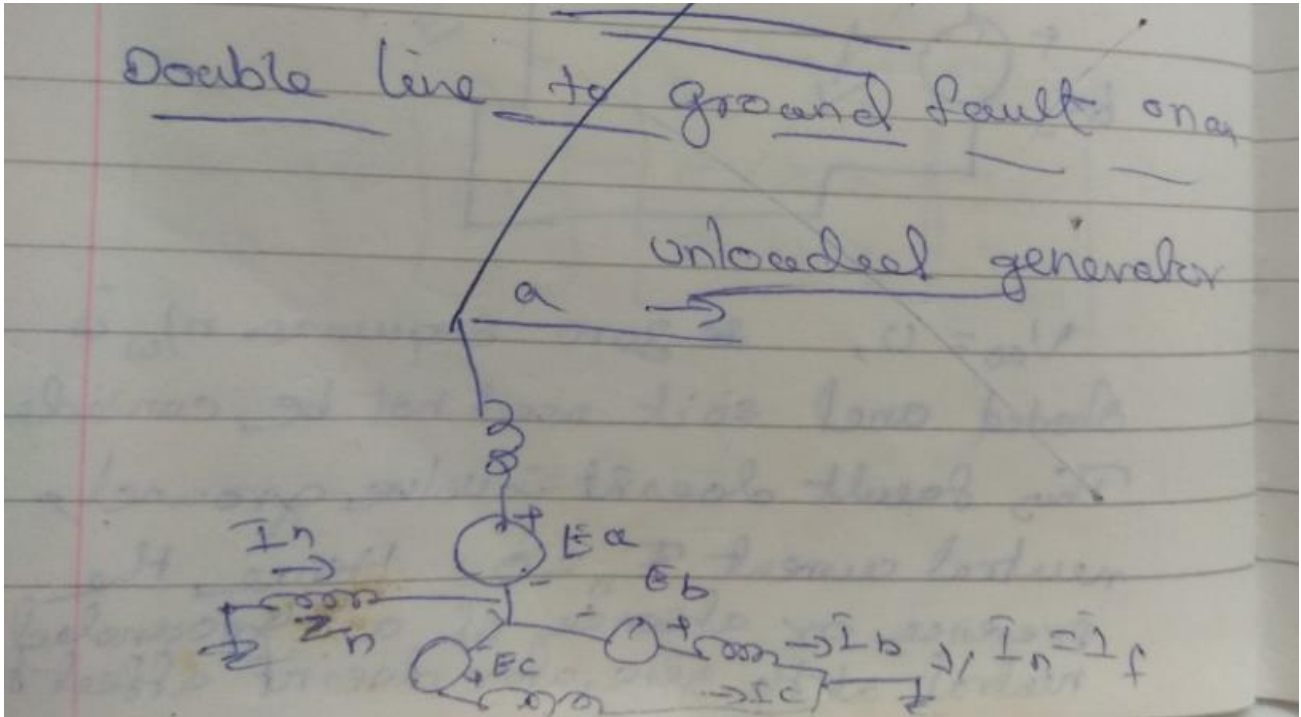 Double line to ground fault on a
unloaded generator
a
In
Ea
Eb
Zn
Ib
In = If
Ec
Ic